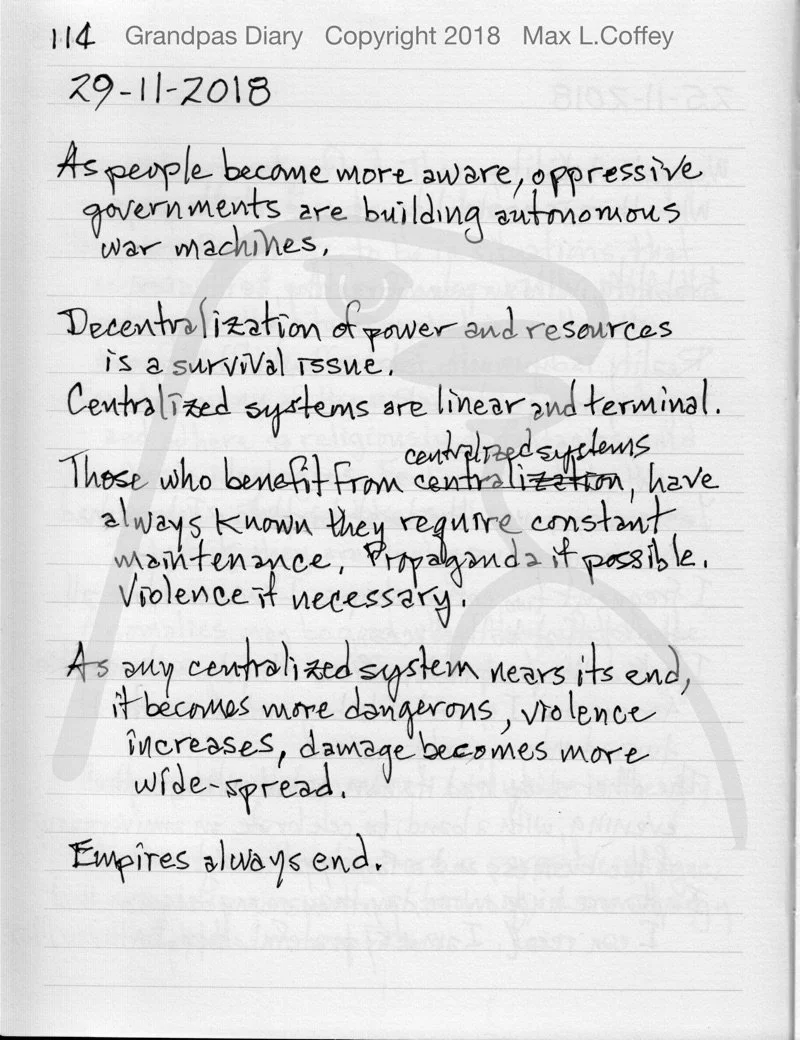 114 Grandpas Diary Copyright 2018 Max L.Coffey
29-11-2018
As people become more aware, oppressive
governments are building autonomous
war machines.
Decentralization of power and resources
is a survival issue.
Centralized systems are linear and terminal.
centralized systems
Those who benefit from centralization, have
always known they require constant
maintenance, Propaganda if possible.
Violence if necessary.
As any centralized system nears its end,
it becomes more dangerous, violence
increases, damage becomes more
wide-spread.
Empires always end.